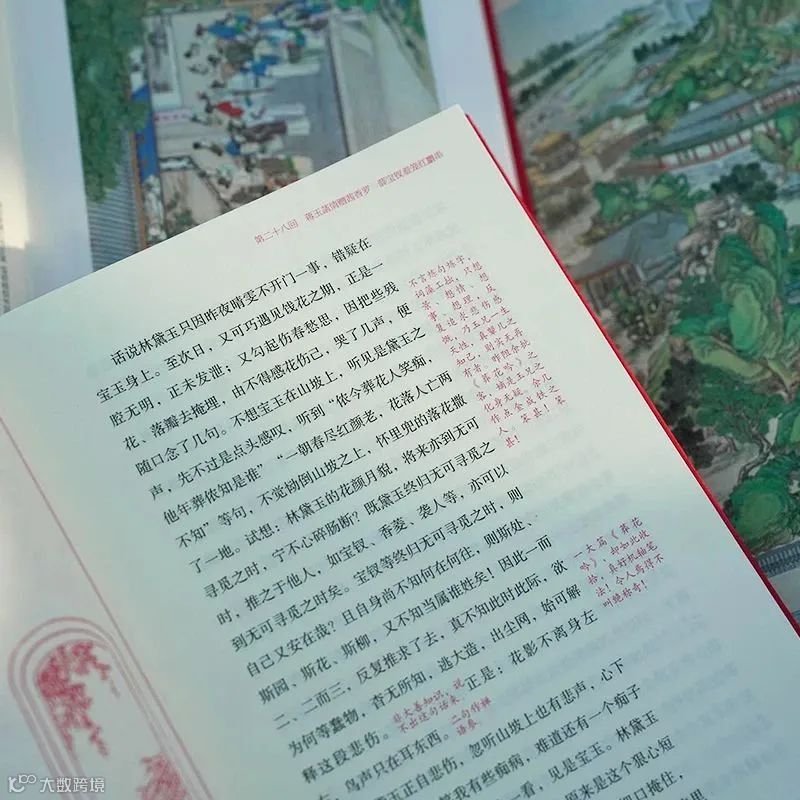 第二十八回 蒋玉菡情赠茜香罗 薛宝钗羞笼红麝串
话说林黛玉只因昨夜晴雯不开门一事，错疑在
宝玉身上。至次日，又可巧遇见饯花之期，正是一
腔无明，正未发泄；又勾起伤春愁思，因把些残
花、落瓣去掩埋，由不得感花伤己，哭了几声，便
随口念了几句。不想宝玉在山坡上，听见是黛玉之
声，先不过是点头感叹，听到“侬今葬花人笑痴，
他年葬侬知是谁”“一朝春尽红颜老，花落人亡两
不知”等句，不觉恸倒山坡之上，怀里兜的落花撒
了一地。试想：林黛玉的花颜月貌，将来亦到无可
寻觅之时，宁不心碎肠断？既黛玉终归无可寻觅之
时，推之于他人，如宝钗、香菱、袭人等，亦可以
到无可寻觅之时矣。宝钗等终归无可寻觅之时，则
自己又安在哉？且自身尚不知何在何往，则斯处、
斯园、斯花、斯柳，又不知当属谁姓矣！因此一而
二、二而三，反复推求了去，真不知此时此际，欲
为何等蠢物，杳无所知，逃大造，出尘网，始可解
释这段悲伤。
非大善知识，说
不出这句话来。
二句作禅
语参。
正是：花影不离身左
右，鸟声只在耳东西。
黛玉正自悲伤，忽听山坡上也有悲声，心下
笑我有些痴病，难道还有一个痴子
一看，见是宝玉。林黛玉
原来是这个狠心短
口掩住，
不言炼句炼字，
词藻工拙，只想
景、想情、想
事、想理，反
复追求悲伤感
慨，乃玉兄一生
天性。真颦儿之
知己，则实无再
有者。昨阻余批
《葬花吟》之
客，嫡是玉兄之
化身无疑。余几
作点金成铁之
人。笨甚！笨
甚！
一大篇《葬花
吟》却如此收
拾，真好机轴笔
法！令人焉得不
叫绝称奇！
大数跨境